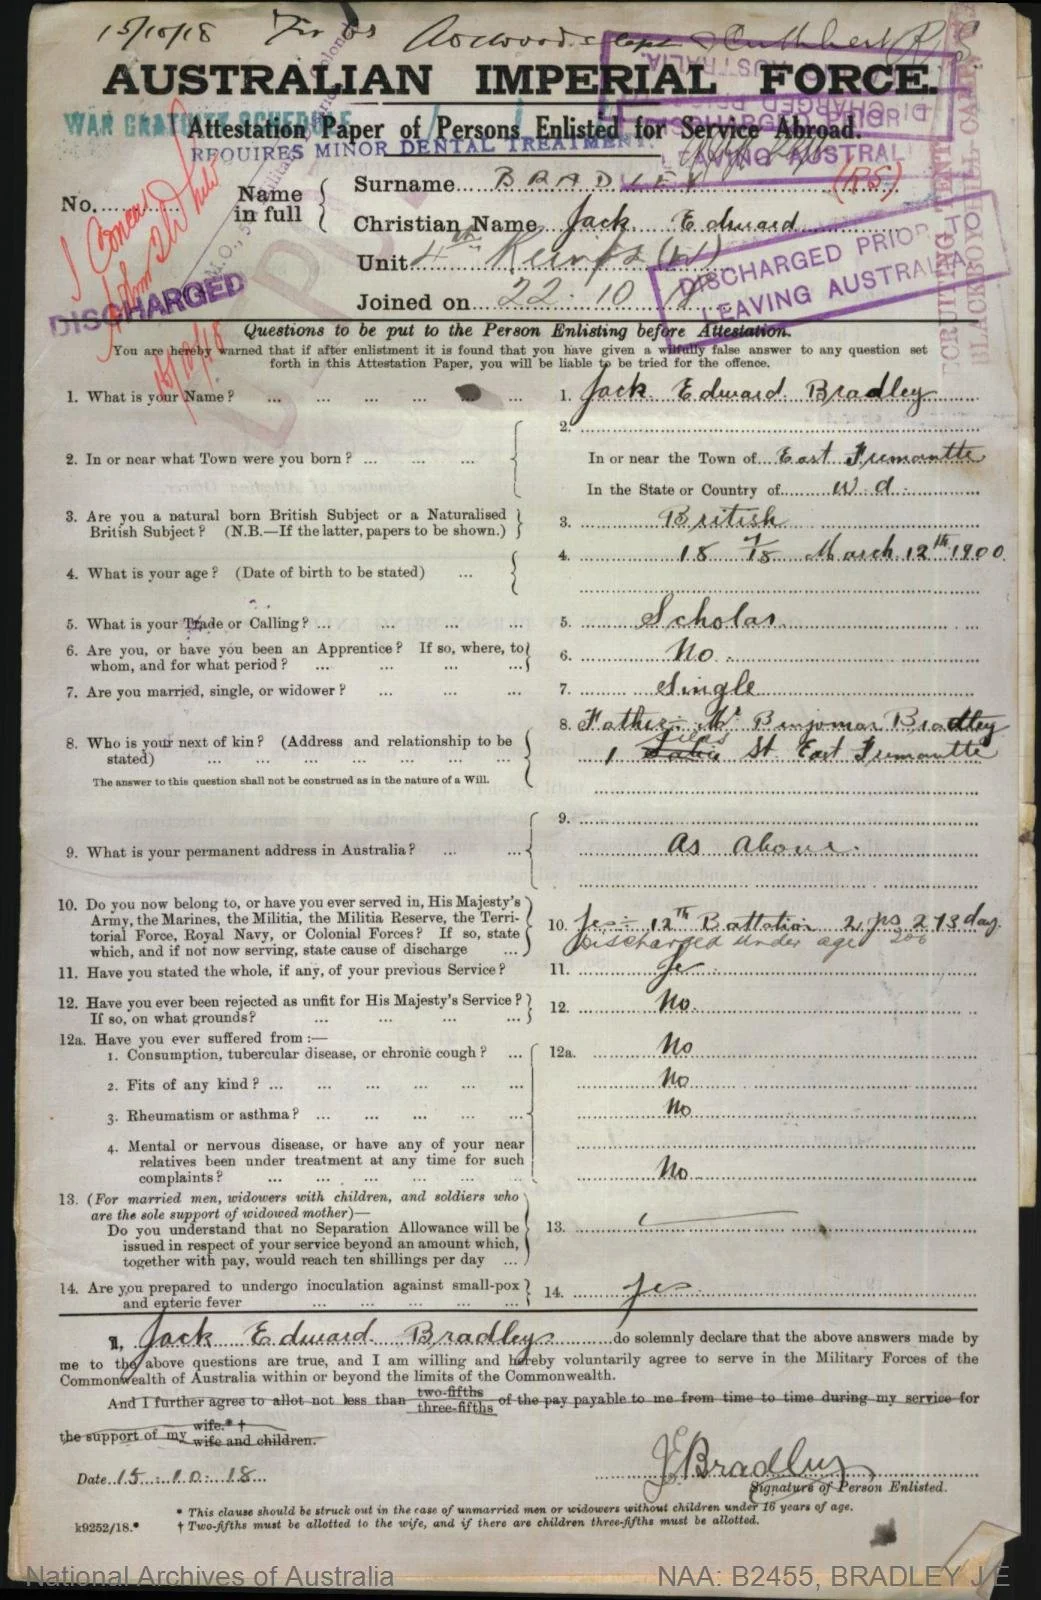 15/10/18
AUSTRALIAN IMPERIAL FORCE.
WAR GRATUITY SCHEDULE
Attestation Paper of Persons Enlisted for Service Abroad.
REQUIRES MINOR DENTAL TREATMENT.
DISCHARGED PRIOR
LEAVING AUSTRAL
No.
Name in full
Surname BRADLEY (RS)
Christian Name Jack Edward
Unit 4th
Joined on 22. 10. 18
I Concur
DISCHARGED
DISCHARGED PRIOR TO
LEAVING AUSTRALIA
Questions to be put to the Person Enlisting before Attestation.
You are hereby warned that if after enlistment it is found that you have given a wilfully false answer to any question set
forth in this Attestation Paper, you will be liable to be tried for the offence.
1. What is your Name? ... 1. Jack Edward Bradley
2. In or near what Town were you born? ... 2.
In or near the Town of East Fremantle
In the State or Country of W.A.
3. Are you a natural born British Subject or a Naturalised
British Subject? (N.B.—If the latter, papers to be shown.) 3. British
4. What is your age? (Date of birth to be stated) ... 4. 18 7/18 March 12th 1900
5. What is your Trade or Calling? ... 5. Scholar
6. Are you, or have you been an Apprentice? If so, where, to
whom, and for what period? ... 6. No.
7. Are you married, single, or widower? ... 7. Single
8. Who is your next of kin? (Address and relationship to be
stated) ... 8. Father:- Mr Benjamar Bradley
1 St. East Fremantle
The answer to this question shall not be construed as in the nature of a Will.
9. What is your permanent address in Australia? ... 9. As above.
10. Do you now belong to, or have you ever served in, His Majesty's
Army, the Marines, the Militia, the Militia Reserve, the Terri-
torial Force, Royal Navy, or Colonial Forces? If so, state
which, and if not now serving, state cause of discharge ...
10. Yes:- 12th Battalion 2 yrs 273 days
Discharged under age
11. Have you stated the whole, if any, of your previous Service? 11. Yes
12. Have you ever been rejected as unfit for His Majesty's Service?
If so, on what grounds? ... 12. No.
12a. Have you ever suffered from:—
1. Consumption, tubercular disease, or chronic cough? ... 12a. No
2. Fits of any kind? ... No
3. Rheumatism or asthma? ... No
4. Mental or nervous disease, or have any of your near
relatives been under treatment at any time for such
complaints? ... No
13. (For married men, widowers with children, and soldiers who
are the sole support of widowed mother)—
Do you understand that no Separation Allowance will be
issued in respect of your service beyond an amount which,
together with pay, would reach ten shillings per day ... 13.
14. Are you prepared to undergo inoculation against small-pox
and enteric fever ... 14. Yes
I, Jack Edward Bradley do solemnly declare that the above answers made by
me to the above questions are true, and I am willing and hereby voluntarily agree to serve in the Military Forces of the
Commonwealth of Australia within or beyond the limits of the Commonwealth.
And I further agree to allot not less than two-fifths three-fifths of the pay payable to me from time to time during my service for
the support of my wife.* † wife and children.
Date 15. 10. 18
JEBradley
Signature of Person Enlisted.
* This clause should be struck out in the case of unmarried men or widowers without children under 16 years of age.
k9252/18.* † Two-fifths must be allotted to the wife, and if there are children three-fifths must be allotted.
National Archives of Australia
NAA: B2455, BRADLEY J E